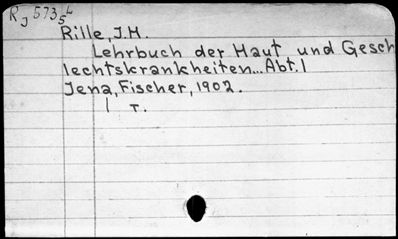 R J 573 5 L
Rille, J.H.
Lehrbuch der Haut und Gesch
lechtskrankheiten... Abt. I
Jena, Fischer, 1902.
I T.